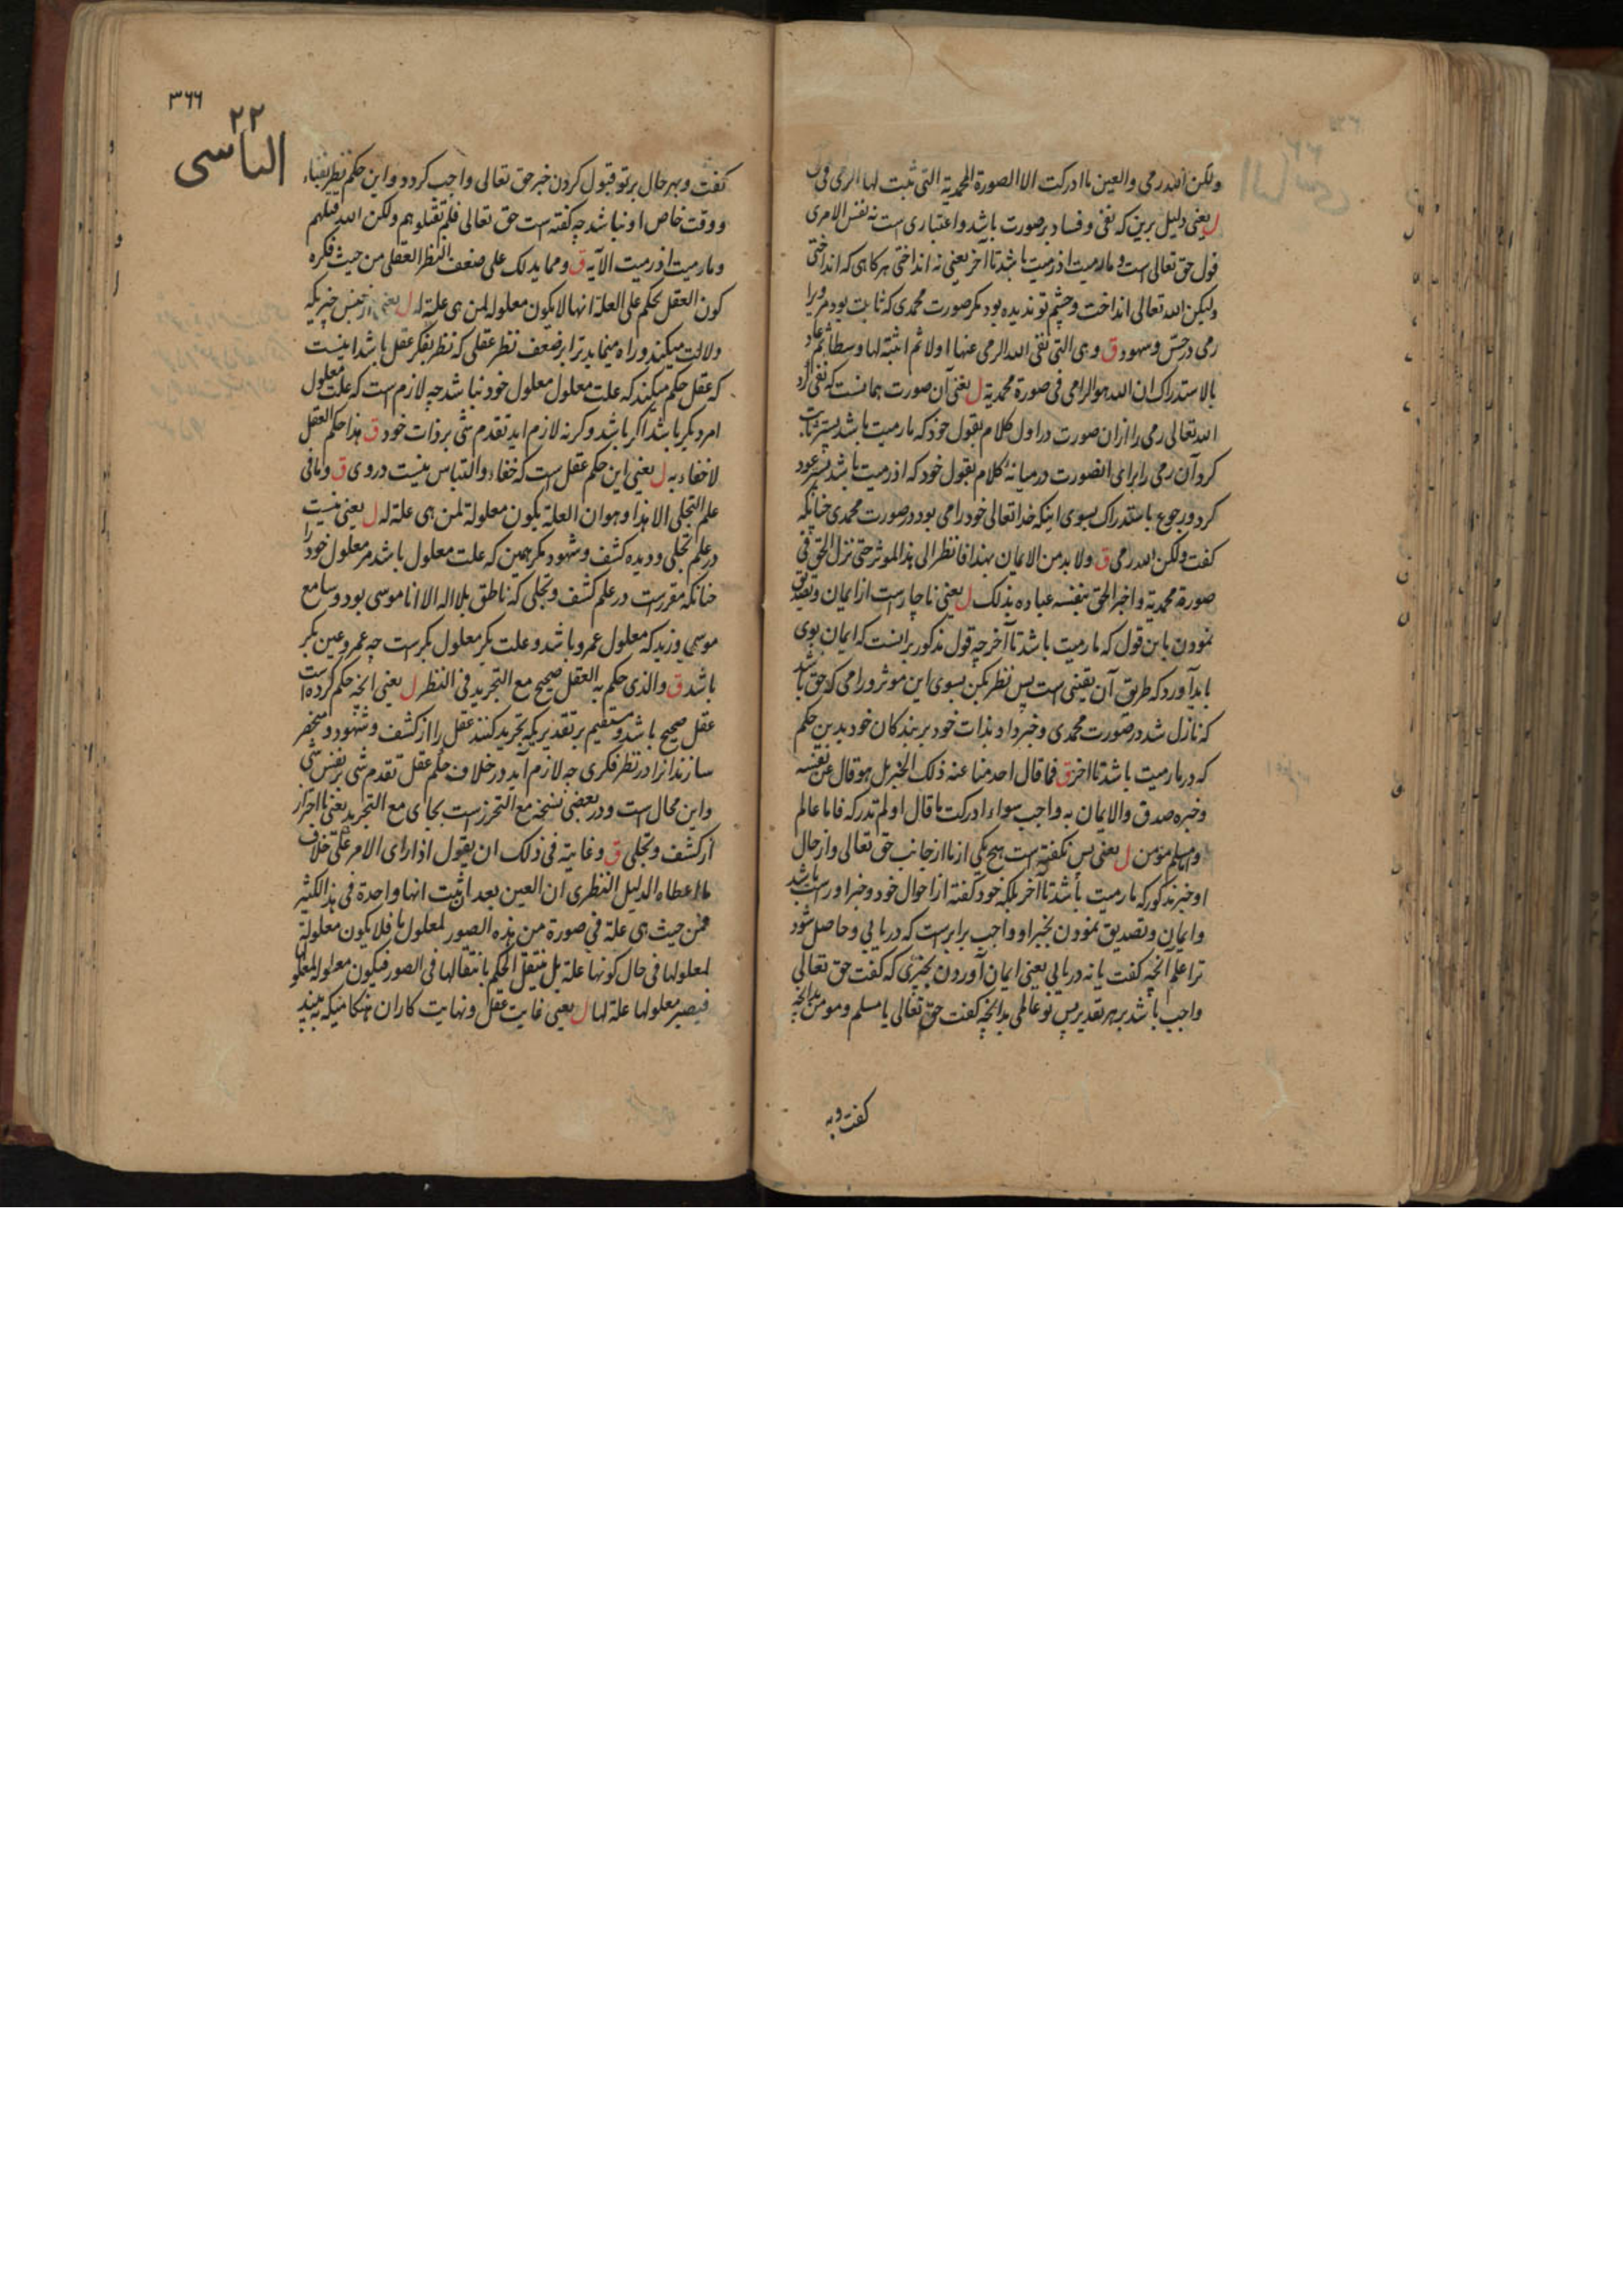 ولکن الله رمی والعین ما ادرکت الا الصورة المحمدیة التی ثبت لها الرمی فی
ل یعنی دلیل برین که نفی و فساد بر صورت باشد و اعتباری است نه نفس الامری
قول حق تعالی است و ما رمیت اذ رمیت باشد تا آخر یعنی نه انداختی هرکاهی که انداختی
ولیکن الله تعالی انداخت و چشم تو ندیده بود مکر صورت محمدی که ثابت بود مر ویرا
رمی در حس و شهود ق و هی التی نفی الله الرمی عنها اولا ثم اثبته لها وسطا ثم عاد
بالاستدراک ان الله هو الرامی فی صورة محمدیة ل یعنی آن صورت همانست که نفی کرد
الله تعالی رمی را ازان صورت در اول کلام بقول خود که ما رمیت باشد پستر ثابت
کرد آن رمی را برای انصورت در میانه کلام بقول خود که اذ رمیت باشد پستر عود
کرد و رجوع باستدراک بسوی اینکه خدا تعالی خود رامی بود در صورت محمدی چنانکه
کفت ولکن الله رمی ق ولا بد من الایمان بهذا فانظر الی هذا الموثر حتی نزل الحق فی
صورة محمدیة و اخبر الحق بنفسه عباده بذلک ل یعنی ناچار است از ایمان و تصدیق
نمودن باین قول که ما رمیت باشد تا آخر چه قول مذکور برانست که ایمان بوی
باید آورد که طریق آن یقینی است پس نظر بکن بسوی این موثر و رامی که حق باشد
که نازل شد در صورت محمدی و خبر داد بذات خود بر بندکان خود بدین حکم
که در ما رمیت باشد تا اخر ق فما قال احد منا عنه ذلک الخبر بل هو قال عن نفسه
و خبره صدق والایمان به واجب سواء ادرکت ما قال او لم تدرکه فاما عالم
واما مسلم مؤمن ل یعنی پس نکفته است هیچ یکی از ما از جانب حق تعالی و از حال
او خبر مذکور که ما رمیت باشد تا آخر بلکه خود کفته از احوال خود و خبر او راست باشد
و ایمان و تصدیق نمودن بخبر او واجب برابر است که دریابی و حاصل شود
ترا علم آنچه کفت یا نه دریابی یعنی ایمان آوردن بخبری که کفت حق تعالی
واجب باشد بر هر تقدیر پس تو عالمی بدانچه کفت حق تعالی یا مسلم و مومن بدانچه
کفت و به
۳۶۶
۲۲
الیاسی
کفت و بهر حال بر تو قبول کردن خبر حق تعالی واجب کردد و این حکم نظر بفناء
و وقت خاص او نباشد چه کفته است حق تعالی فلم تقتلوهم ولکن الله قتلهم
و ما رمیت اذ رمیت الآیه ق و مما یدلک علی ضعف النظر العقلی من حیث فکره
کون العقل یحکم علی العلة انها لا یکون معلولة لمن هی علة له ل یعنی از جنس چیزیکه
دلالت میکند و راه مینماید ترا بر ضعف نظر عقلی که نظر بفکر عقل باشد اینست
که عقل حکم میکند که علت معلول معلول خود نباشد چه لازم است که علت معلول
امر دیکر باشد اکر باشد و کرنه لازم اید تقدم شی بر ذات خود ق هذا حکم العقل
لا خفاء به ل یعنی این حکم عقل است که خفاء و التباس نیست در وی ق و ما فی
علم التجلی الا هذا و هو ان العلة یکون معلولة لمن هی علة له ل یعنی نیست
در علم تجلی و دیده کشف و شهود مکر همین که علت معلول باشد مر معلول خود را
چنانکه مقررست در علم کشف و تجلی که ناطق بلا اله الا انا موسی بود و سامع
موسی و زید که معلول عمرو باشد و علت بکر معلول بکرست چه عمرو عین بکر
باشد ق والذی حکم به العقل صحیح مع التجرید فی النظر ل یعنی انچه حکم کرده است
عقل صحیح باشد و مستقیم بر تقدیریکه تجرید کنند عقل را از کشف و شهود و منحصر
سازند انرا در نظر فکری چه لازم آید در خلاف حکم عقل تقدم شی بر نفس شی
و این محال است و در بعضی نسخه مع التحرز است بجای مع التجرید یعنی با احتراز
از کشف و تجلی ق و غایته فی ذلک ان یقول اذا رای الامر علی خلاف
ما اعطاه الدلیل النظری ان العین بعد ان ثبت انها واحدة فی هذا الکثیر
فمن حیث هی علة فی صورة من هذه الصور لمعلول ما فلا یکون معلولة
لمعلولها فی حال کونها علة بل ینتقل الحکم بانتقالها فی الصور فیکون معلولة لمعلولها
فیصیر معلولها علة لها ل یعنی غایت عقل و نهایت کار ان هنکامیکه به بیند